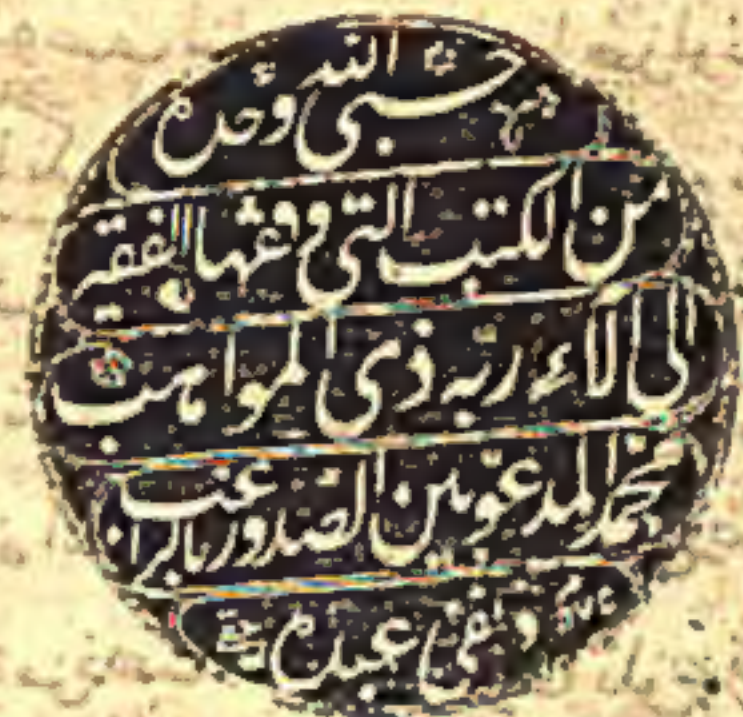 حسبي الله وحده
من الكتب التي وقفها الفقير
الى آلاء ربه ذي المواهب
محمد المدعو بين الصدور بالراغب
وقفى عبده